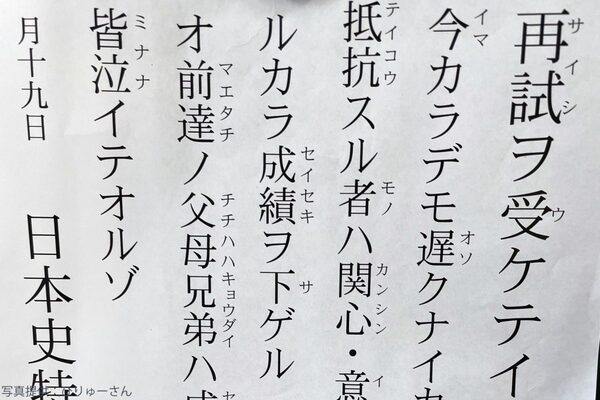 サイシ ウ
再試ヲ受ケテイ
イマ オソ
今カラデモ遅クナイカ
テイコウ モノ カンシン イ
抵抗スル者ハ関心・意
セイセキ サ
ルカラ成績ヲ下ゲル
マエタチ チチハハキョウダイ セ
オ前達ノ父母兄弟ハ成
ミナナ
皆泣イテオルゾ
月十九日 日本史特
写真提供：りゅーさん